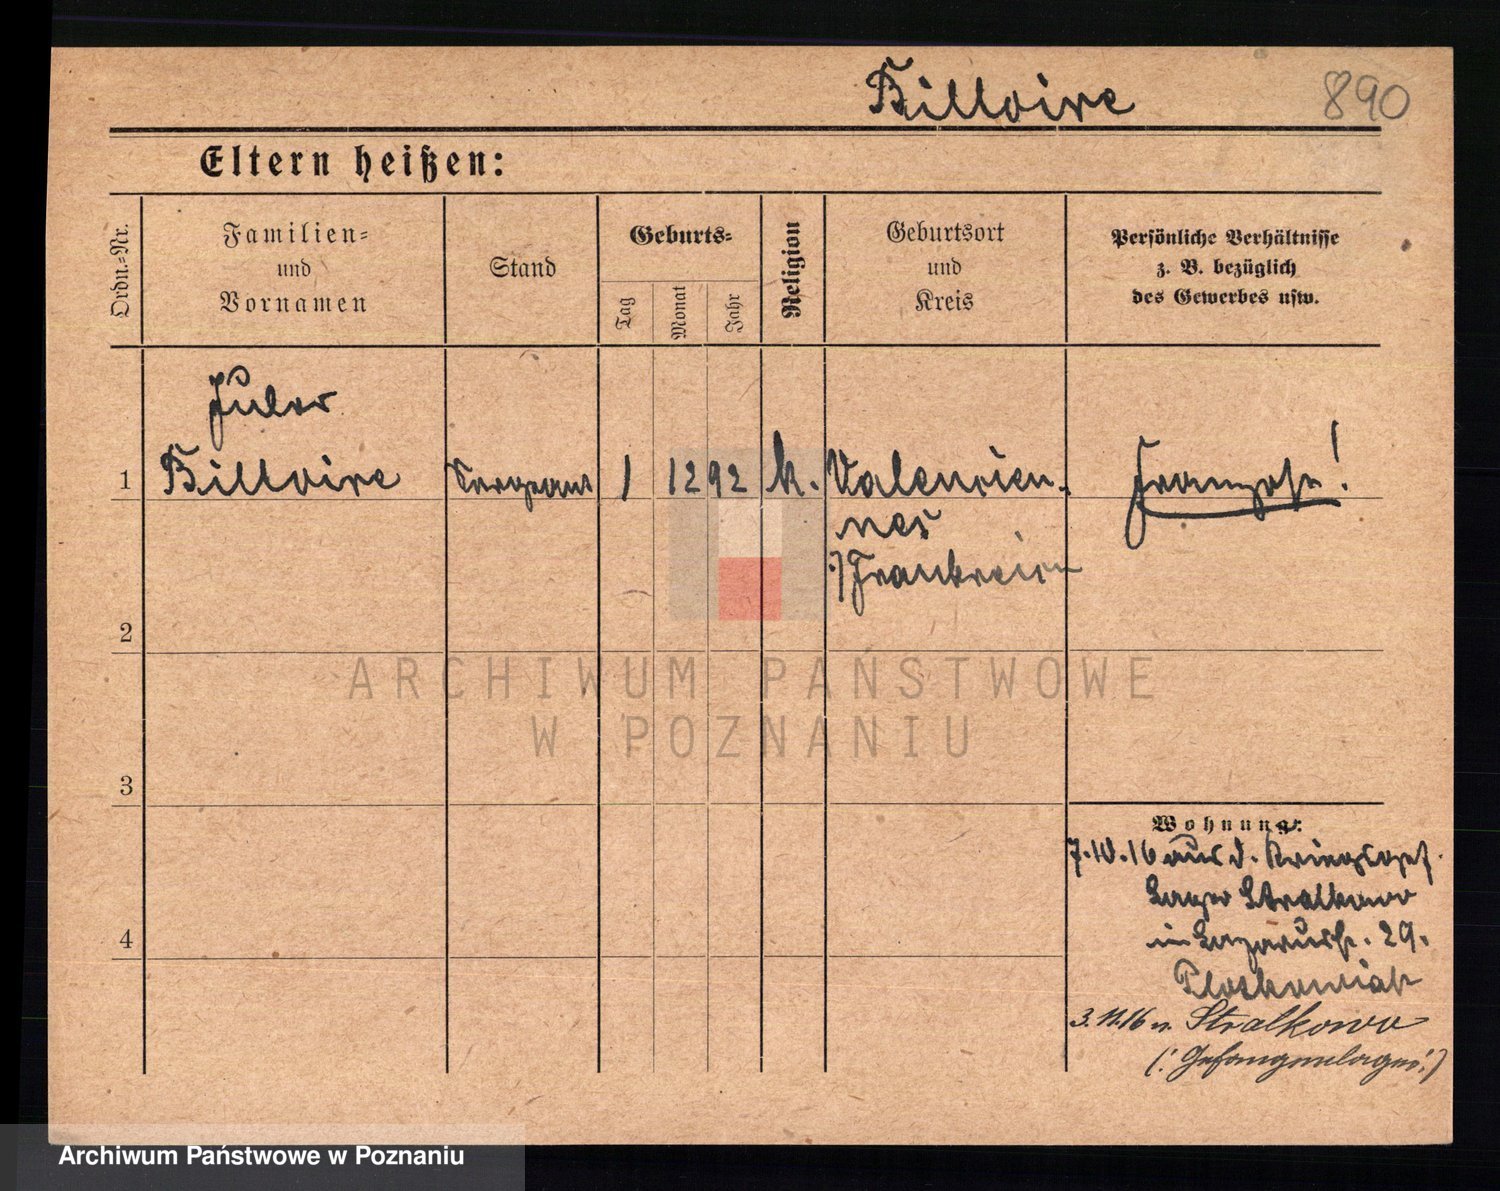 Billoire 890
Eltern heißen:
Ordn.-Nr.
Familien-
und
Vornamen
Stand
Geburts-
Tag
Monat
Jahr
Religion
Geburtsort
und
Kreis
Persönliche Verhältnisse
z. B. bezüglich
des Gewerbes usw.
Jules
1 Billoire Sergeant 1 12 92 k. Valencien- Franzose!
nes
Frankreich
2
ARCHIWUM PAŃSTWOWE
W POZNANIU
3
Wohnung:
7.10.16 aus d. Kriegsgef.
Lager Stralkowo
im 29.
4
3.11.16 n. Stralkowo
(: Gefangenlager :)
Archiwum Państwowe w Poznaniu